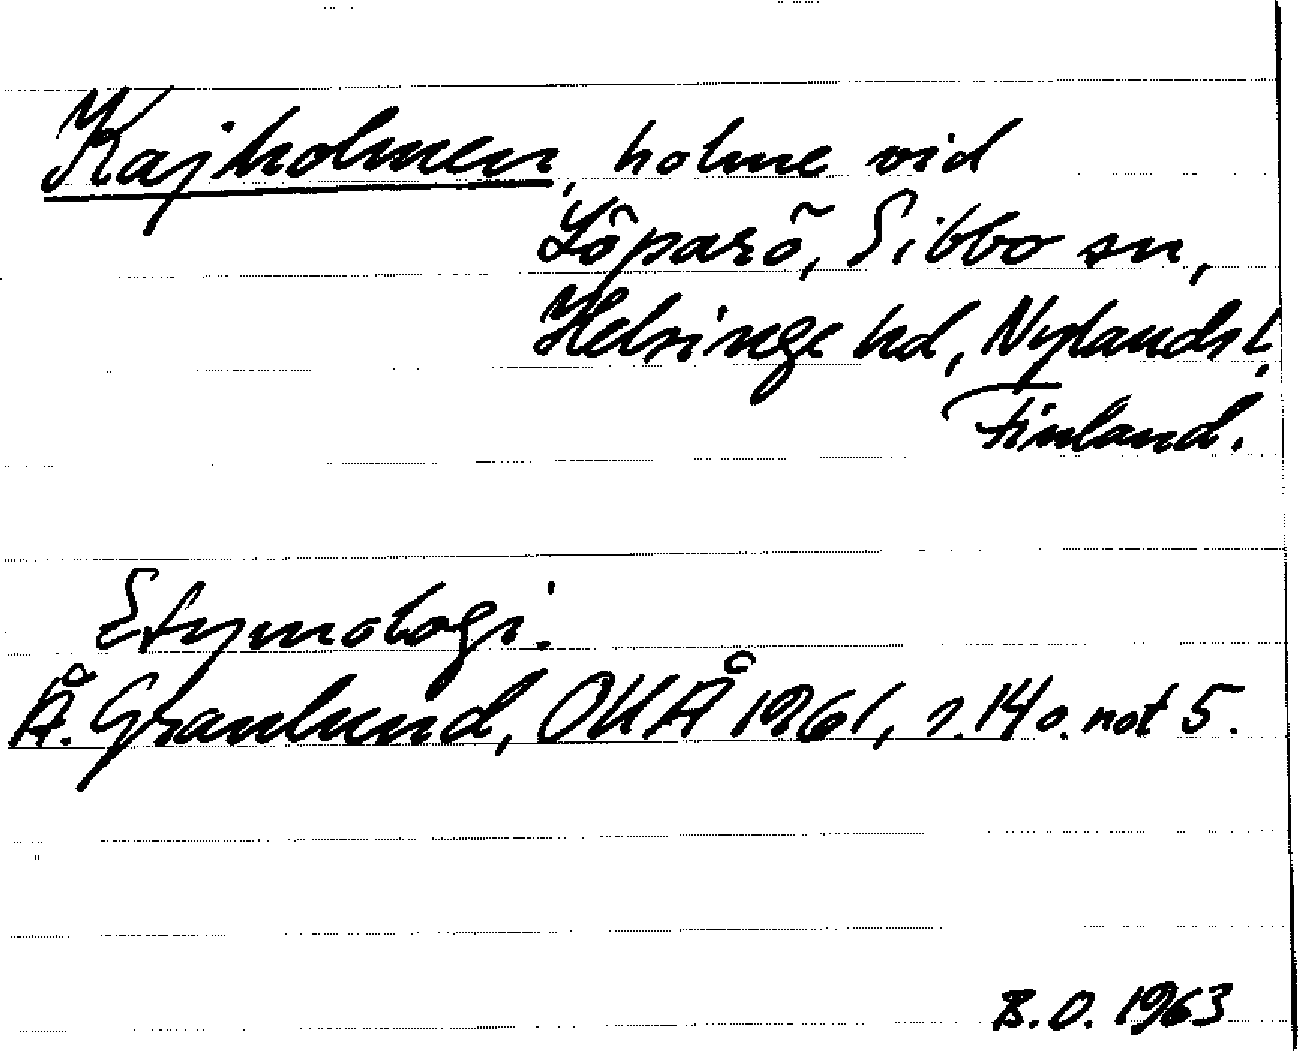 Kajholmen, holme vid
Löparö, Sibbo sn,
Helsinge hd, Nylands l,
Finland.
Etymologi.
Å. Granlund, OUÅ 1961, s. 14 o. not 5.
B.O. 1963